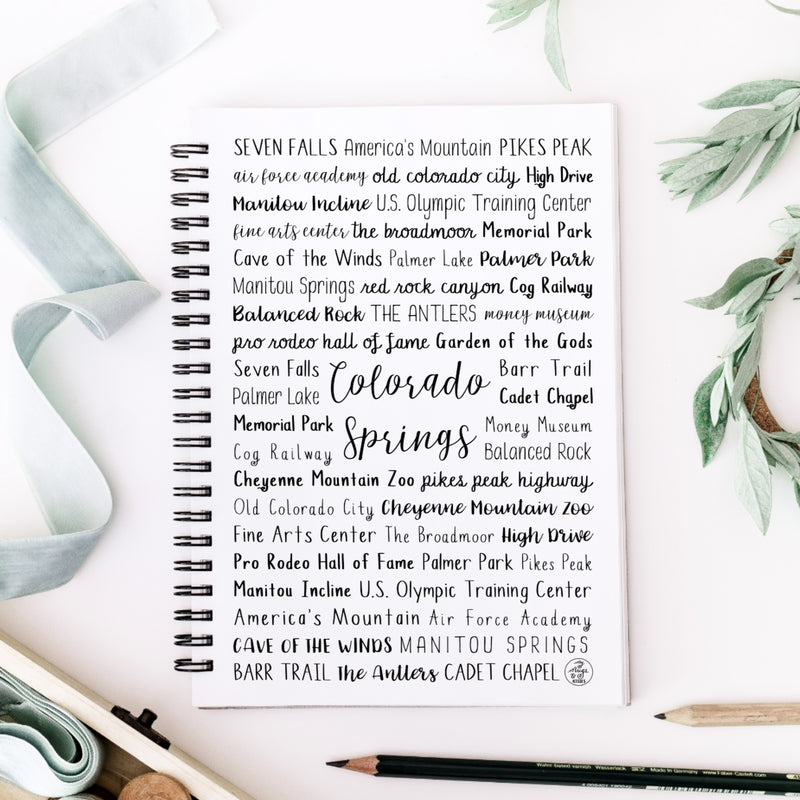 SEVEN FALLS America's Mountain PIKES PEAK
air force academy old colorado city High Drive
Manitou Incline U.S. Olympic Training Center
fine arts center the broadmoor Memorial Park
Cave of the Winds Palmer Lake Palmer Park
Manitou Springs red rock canyon Cog Railway
Balanced Rock THE ANTLERS money museum
pro rodeo hall of fame Garden of the Gods
Seven Falls Barr Trail
Palmer Lake Colorado Cadet Chapel
Memorial Park Money Museum
Cog Railway Springs Balanced Rock
Cheyenne Mountain Zoo pikes peak highway
Old Colorado City Cheyenne Mountain Zoo
Fine Arts Center The Broadmoor High Drive
Pro Rodeo Hall of Fame Palmer Park Pikes Peak
Manitou Incline U.S. Olympic Training Center
America's Mountain Air Force Academy
CAVE OF THE WINDS MANITOU SPRINGS
BARR TRAIL The Antlers CADET CHAPEL
Made in Germany www.Faber-Castell.com